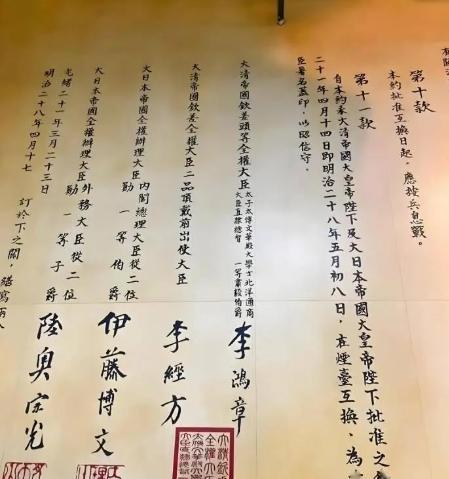 第十款
本約批准互換日起，應按兵息戰。
第十一款
自本約奉大清帝國大皇帝陛下及大日本帝國大皇帝陛下批准之
二十一年四月十四日即明治二十八年五月初八日，在煙臺互換，為
臣署名蓋印，以昭信守。
大清帝國欽差頭等全權大臣
太子太傅文華殿大學士北洋通商
大臣直隸總督 一等肅毅伯爵
李鴻章
大清帝國欽差全權大臣二品頂戴前出使大臣
李經方
大日本帝國全權辦理大臣
內閣總理大臣從二位
勳一等伯爵
伊藤博文
大日本帝國全權辦理大臣
外務大臣從二位
勳一等子爵
陸奧宗光
光緒二十一年三月二十三日
明治二十八年四月十七
訂於下之關，繕寫兩